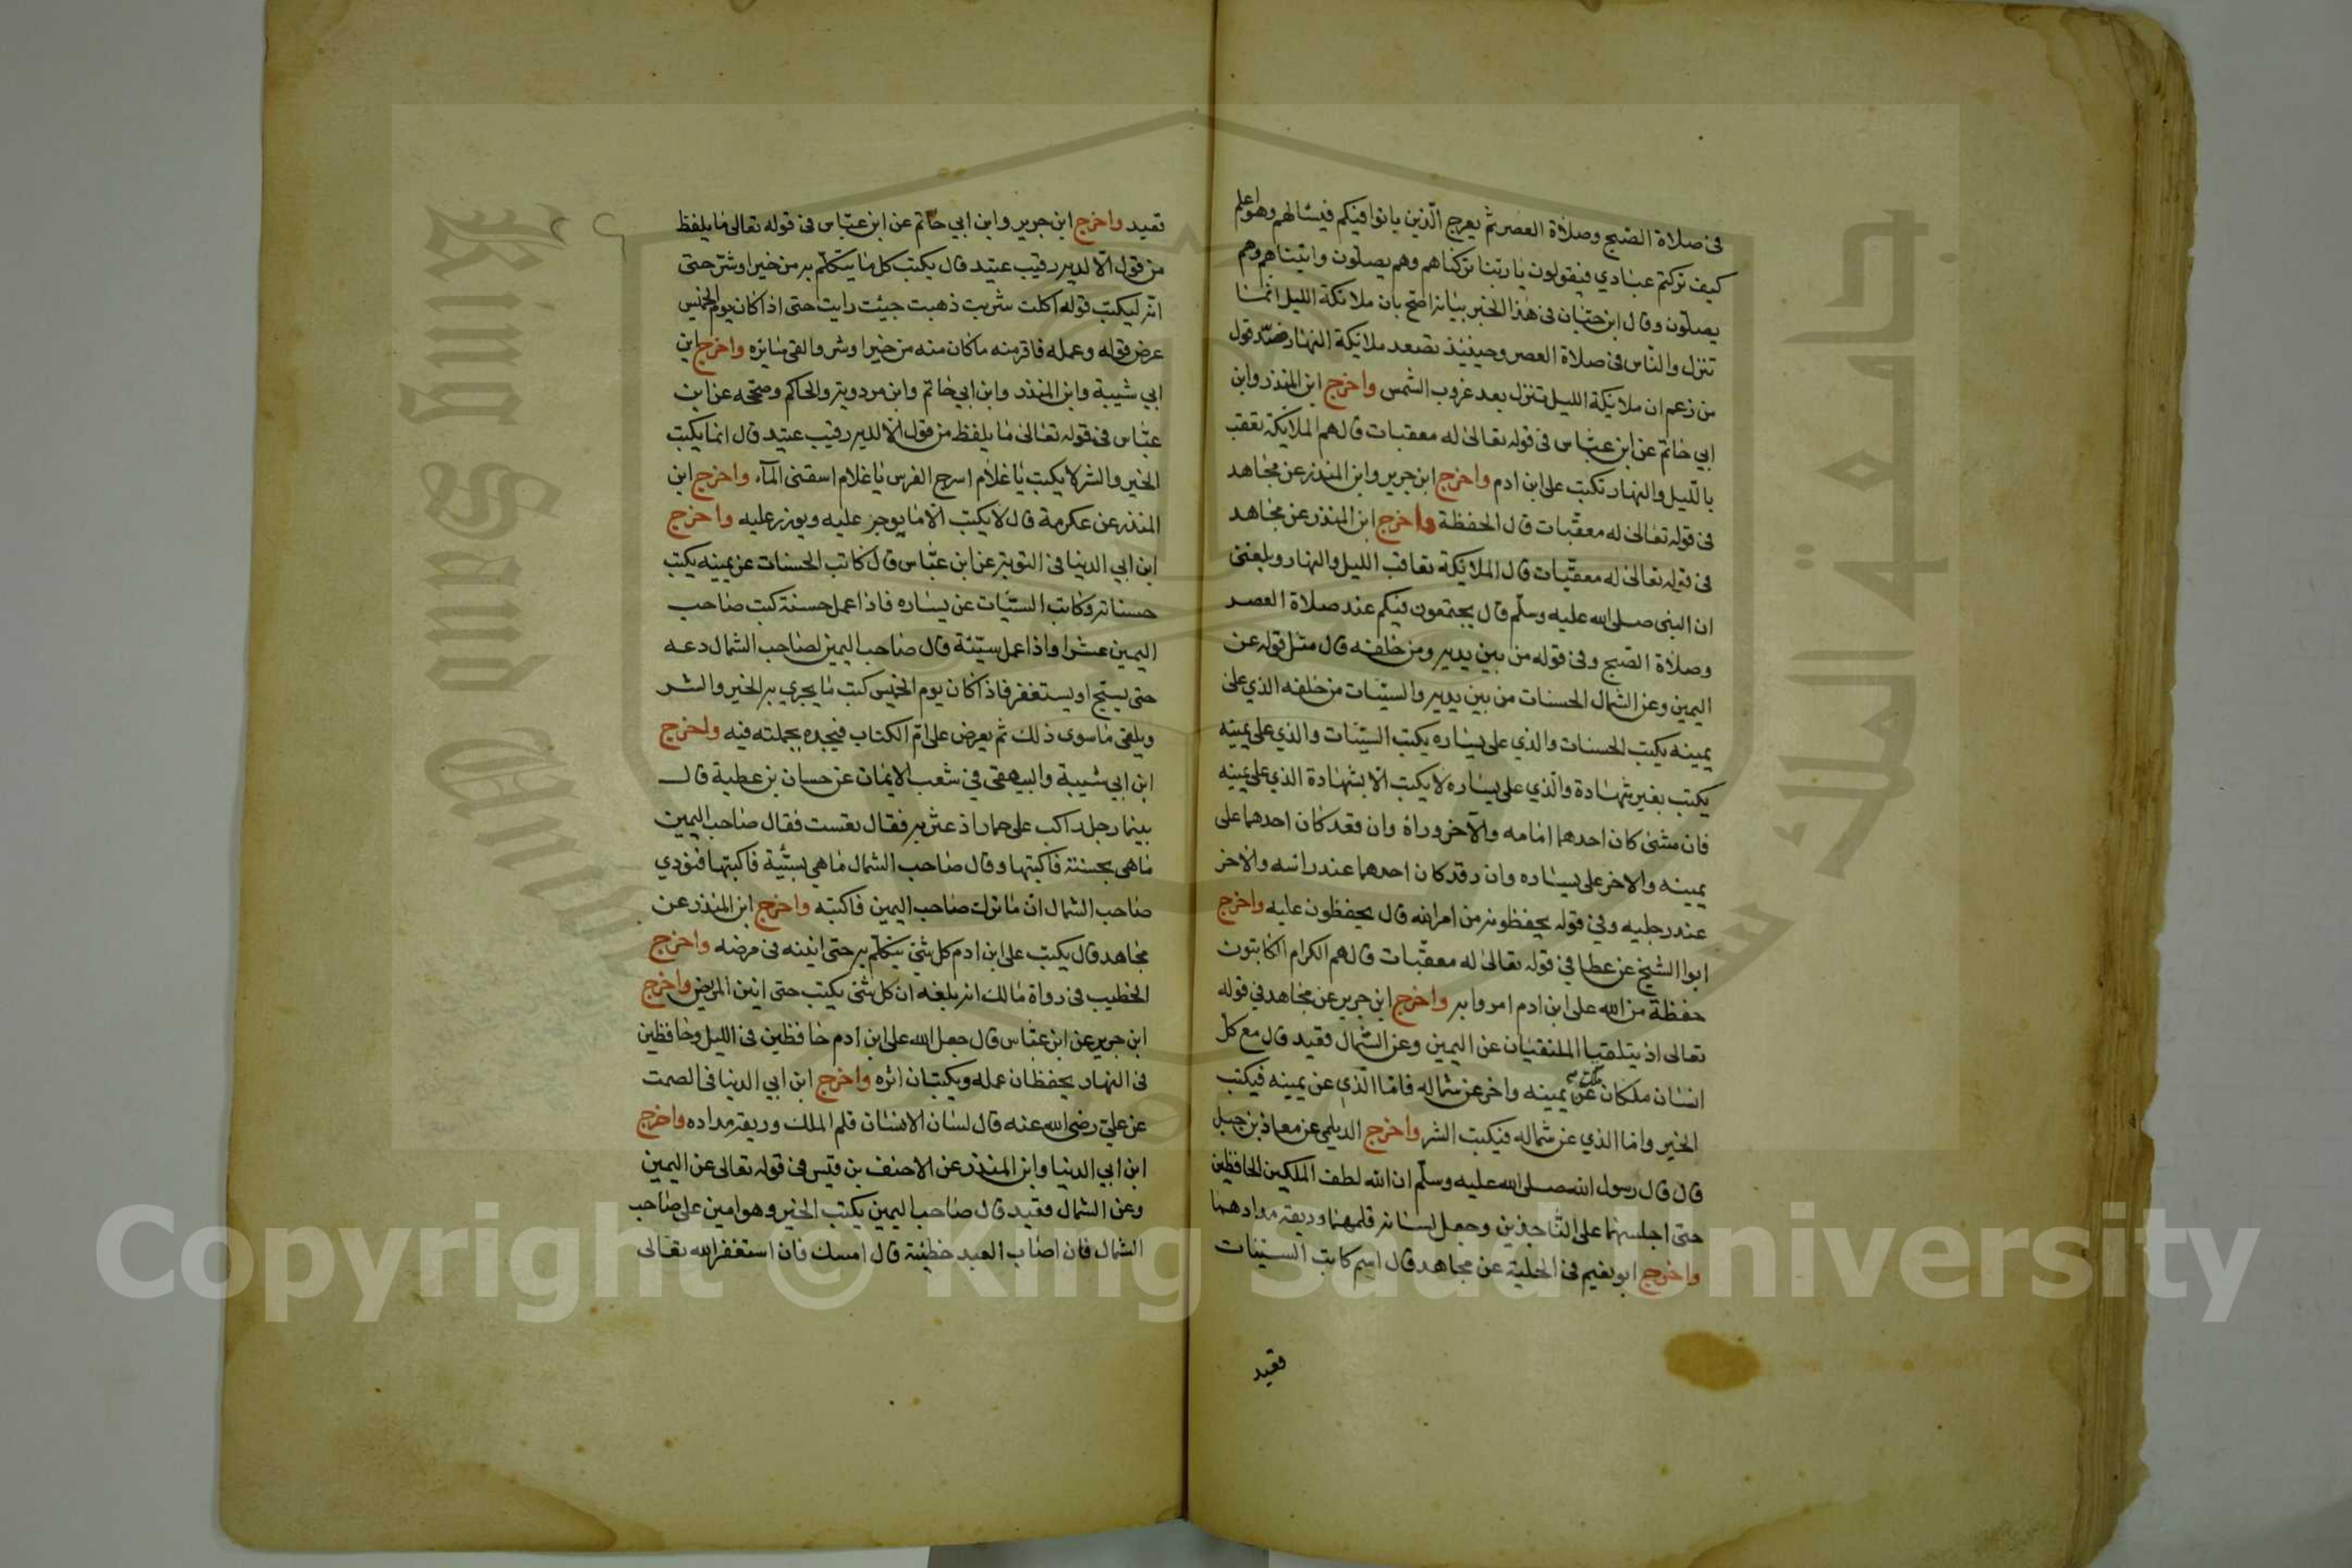 في صلاة الصبح وصلاة العصر ثم يعرج الذين باتوا فيكم فيسألهم وهو اعلم
كيف تركتم عبادي فيقولون يا ربنا تركناهم وهم يصلون واتيناهم وهم
يصلون وقال ابن حبان في هذا الخبر بيان واضح بان ملائكة الليل انما
تنزل والناس في صلاة العصر وحينئذ تصعد ملائكة النهار ضد قول
من زعم ان ملائكة الليل تنزل بعد غروب الشمس واخرج ابن المنذر وابن
ابي حاتم عن ابن عباس في قوله تعالى له معقبات قال هم الملائكة تعقب
بالليل والنهار تكتب على ابن ادم واخرج ابن جرير وابن المنذر عن مجاهد
في قوله تعالى له معقبات قال الحفظة واخرج ابن المنذر عن مجاهد
في قوله تعالى له معقبات قال الملائكة تعاقب الليل والنهار وبلغني
ان النبي صلى الله عليه وسلم قال يجتمعون فيكم عند صلاة العصر
وصلاة الصبح وفي قوله من بين يديه ومن خلفه قال مثل قوله عن
اليمين وعن الشمال الحسنات من بين يديه والسيئات من خلفه الذي على
يمينه يكتب الحسنات والذي على يساره يكتب السيئات والذي على يمينه
يكتب بغير شهادة والذي على يساره لا يكتب الا بشهادة الذي على يمينه
فان مشى كان احدهما امامه والآخر وراه وان قعد كان احدهما على
يمينه والاخر على يساره وان رقد كان احدهما عند راسه والاخر
عند رجليه وفي قوله يحفظونه من امر الله قال يحفظون عليه واخرج
ابوا الشيخ عن عطا في قوله تعالى له معقبات قال هم الكرام الكاتبون
حفظة من الله على ابن ادم امروا به واخرج ابن جرير عن مجاهد في قوله
تعالى اذ يتلقيا المتلقيان عن اليمين وعن الشمال قعيد قال مع كل
انسان ملكان ملك عن يمينه واخر عن شماله فاما الذي عن يمينه فيكتب
الخير واما الذي عن شماله فيكتب الشر واخرج الديلمي عن معاذ بن جبل
قال قال رسول الله صلى الله عليه وسلم ان الله لطف الملكين الحافظين
حتى اجلسهما على الناجذين وجعل لسانه قلمهما وريقه مدادهما
واخرج ابو نعيم في الحلية عن مجاهد قال اسم كاتب السيئات
قعيد
قعيد واخرج ابن جرير وابن ابي حاتم عن ابن عباس في قوله تعالى ما يلفظ
من قول الا لديه رقيب عتيد قال يكتب كل ما يتكلم به من خير او شر حتى
انه ليكتب قوله اكلت شربت ذهبت جيئت رايت حتى اذا كان يوم الخميس
عرض قوله وعمله فاقر منه ما كان منه من خير او شر والقي سايره واخرج ابن
ابي شيبة وابن المنذر وابن ابي حاتم وابن مردويه والحاكم وصححه عن ابن
عباس في قوله تعالى ما يلفظ من قول الا لديه رقيب عتيد قال انما يكتب
الخير والشر لا يكتب يا غلام اسرج الفرس يا غلام اسقني المآء واخرج ابن
المنذر عن عكرمة قال لا يكتب الا ما يوجر عليه ويوزر عليه واخرج
ابن ابي الدنيا في التوبة عن ابن عباس قال كاتب الحسنات عن يمينه يكتب
حسناته وكاتب السيئات عن يساره فاذا عمل حسنة كتب صاحب
اليمين عشرا واذا عمل سيئة قال صاحب اليمين لصاحب الشمال دعه
حتى يسبح او يستغفر فاذا كان يوم الخميس كتب ما يجري به الخير والشر
ويلقي ما سوى ذلك ثم يعرض على ام الكتاب فيجده بجملته فيه واخرج
ابن ابي شيبة والبيهقي في شعب الايمان عن حسان بن عطية قال
بينما رجل راكب على حمار اذ عثر به فقال تعست فقال صاحب اليمين
ما هي بحسنة فاكتبها وقال صاحب الشمال ما هي بسيئة فاكتبها فنودي
صاحب الشمال ان ما ترك صاحب اليمين فاكتبه واخرج ابن المنذر عن
مجاهد قال يكتب على ابن ادم كل شئ يتكلم به حتى انينه في مرضه واخرج
الخطيب في رواة مالك انه بلغه ان كل شئ يكتب حتى انين المريض واخرج
ابن جرير عن ابن عباس قال جعل الله على ابن ادم حافظين في الليل وحافظين
في النهار يحفظان عمله ويكتبان اثره واخرج ابن ابي الدنيا في الصمت
عن علي رضي الله عنه قال لسان الانسان قلم الملك وريقه مداده واخرج
ابن ابي الدنيا وابن المنذر عن الاحنف بن قيس في قوله تعالى عن اليمين
وعن الشمال قعيد قال صاحب اليمين يكتب الخير وهو امين على صاحب
الشمال فان اصاب العبد خطيئة قال امسك فان استغفر الله تعالى
King Saud University
جامعة الملك سعود
Copyright © King Saud University